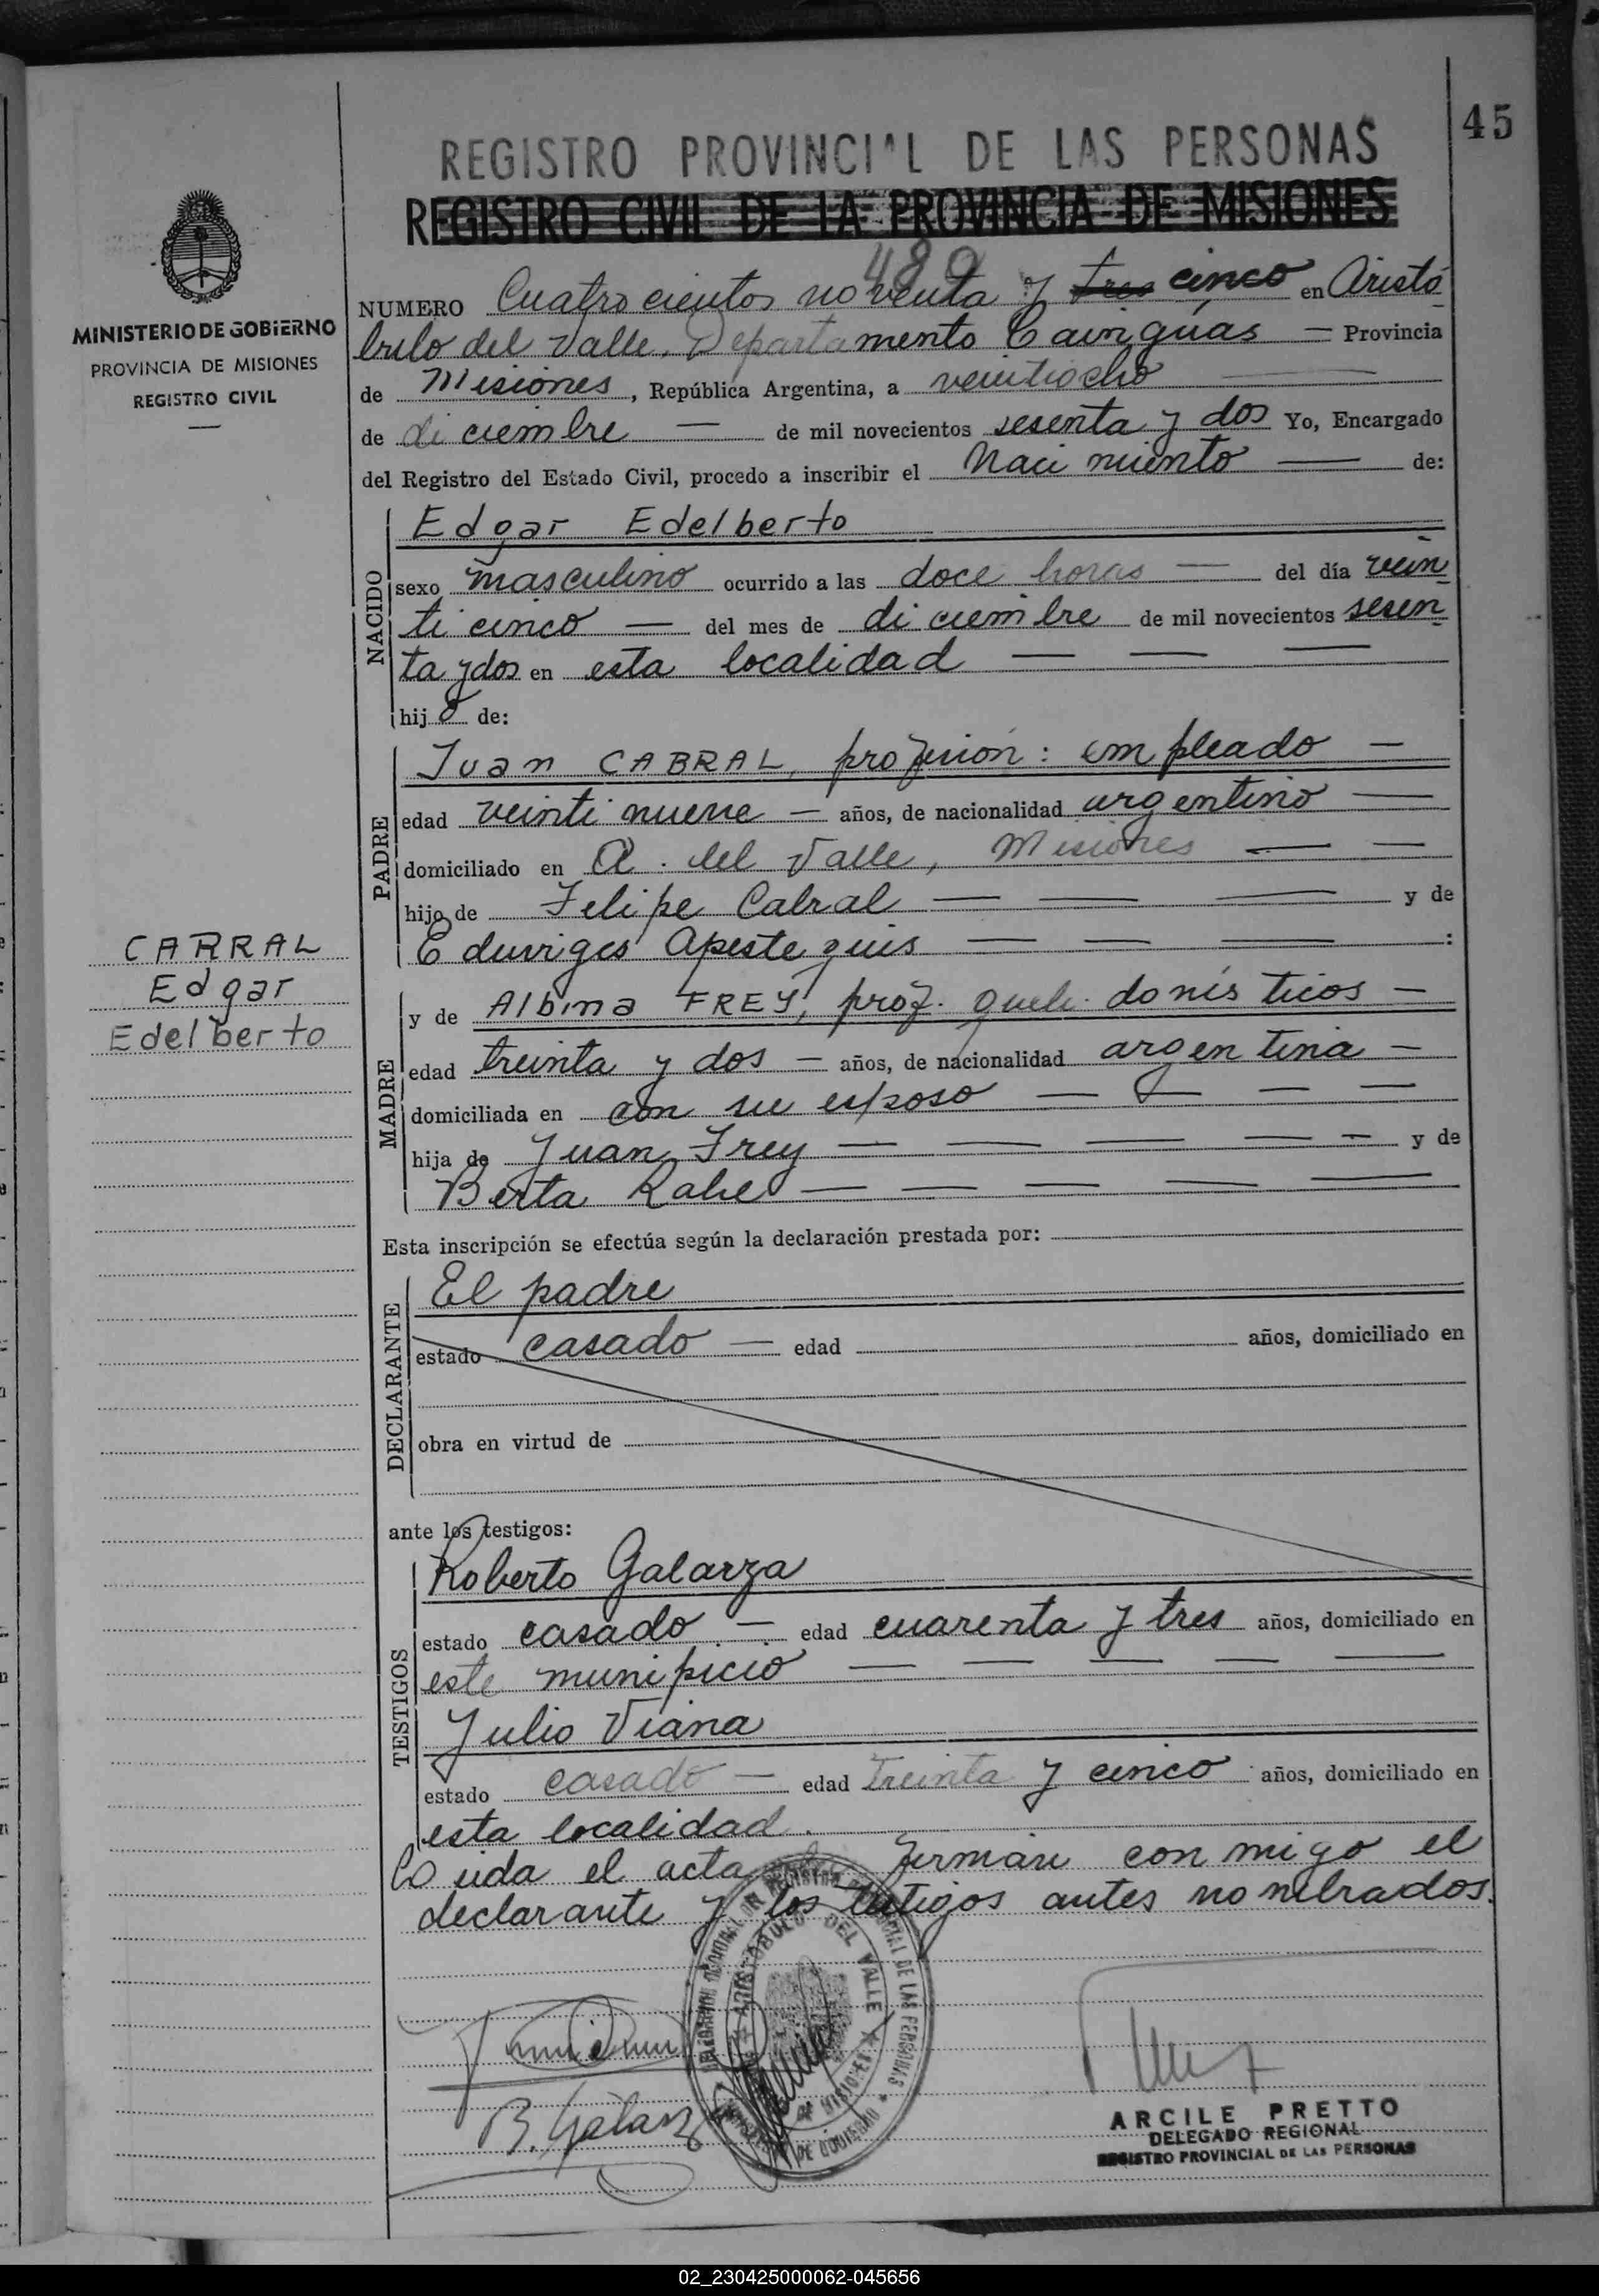 45
REGISTRO PROVINCIAL DE LAS PERSONAS
REGISTRO CIVIL DE LA PROVINCIA DE MISIONES
MINISTERIO DE GOBIERNO
PROVINCIA DE MISIONES
REGISTRO CIVIL
489
NUMERO Cuatrocientos noventa y tres cinco en Aristó
bulo del Valle, Departamento Cainguas — Provincia
de Misiones, República Argentina, a veintiocho
de diciembre — de mil novecientos sesenta y dos Yo, Encargado
del Registro del Estado Civil, procedo a inscribir el Nacimiento — de:
NACIDO
Edgar Edelberto
sexo masculino ocurrido a las doce horas — del día vein
ticinco — del mes de diciembre de mil novecientos sesen
ta y dos en esta localidad — — —
hijo de:
PADRE
Juan CABRAL, profesión: empleado —
edad veintinueve — años, de nacionalidad argentino —
domiciliado en A. del Valle, Misiones — —
hijo de Felipe Cabral — — — y de
Eduviges Apesteguis — — — :
CABRAL
Edgar
Edelberto
MADRE
y de Albina FREY, prof. queh. domésticos —
edad treinta y dos — años, de nacionalidad argentina —
domiciliada en con su esposo — — — —
hija de Juan Frey — — — — — y de
Berta Rahe — — — — —
Esta inscripción se efectúa según la declaración prestada por:
DECLARANTE
El padre
estado casado — edad años, domiciliado en
obra en virtud de
ante los testigos:
TESTIGOS
Roberto Galarza
estado casado — edad cuarenta y tres años, domiciliado en
este munipicio — — — — —
Julio Viana
estado casado — edad treinta y cinco años, domiciliado en
esta localidad.
Leida el acta firman conmigo el
declarante y los testigos antes nombrados.
ARISTOBULO DEL VALLE
DE MISIONES
R. Galarza
ARCILE PRETTO
DELEGADO REGIONAL
REGISTRO PROVINCIAL DE LAS PERSONAS
02_230425000062-045656